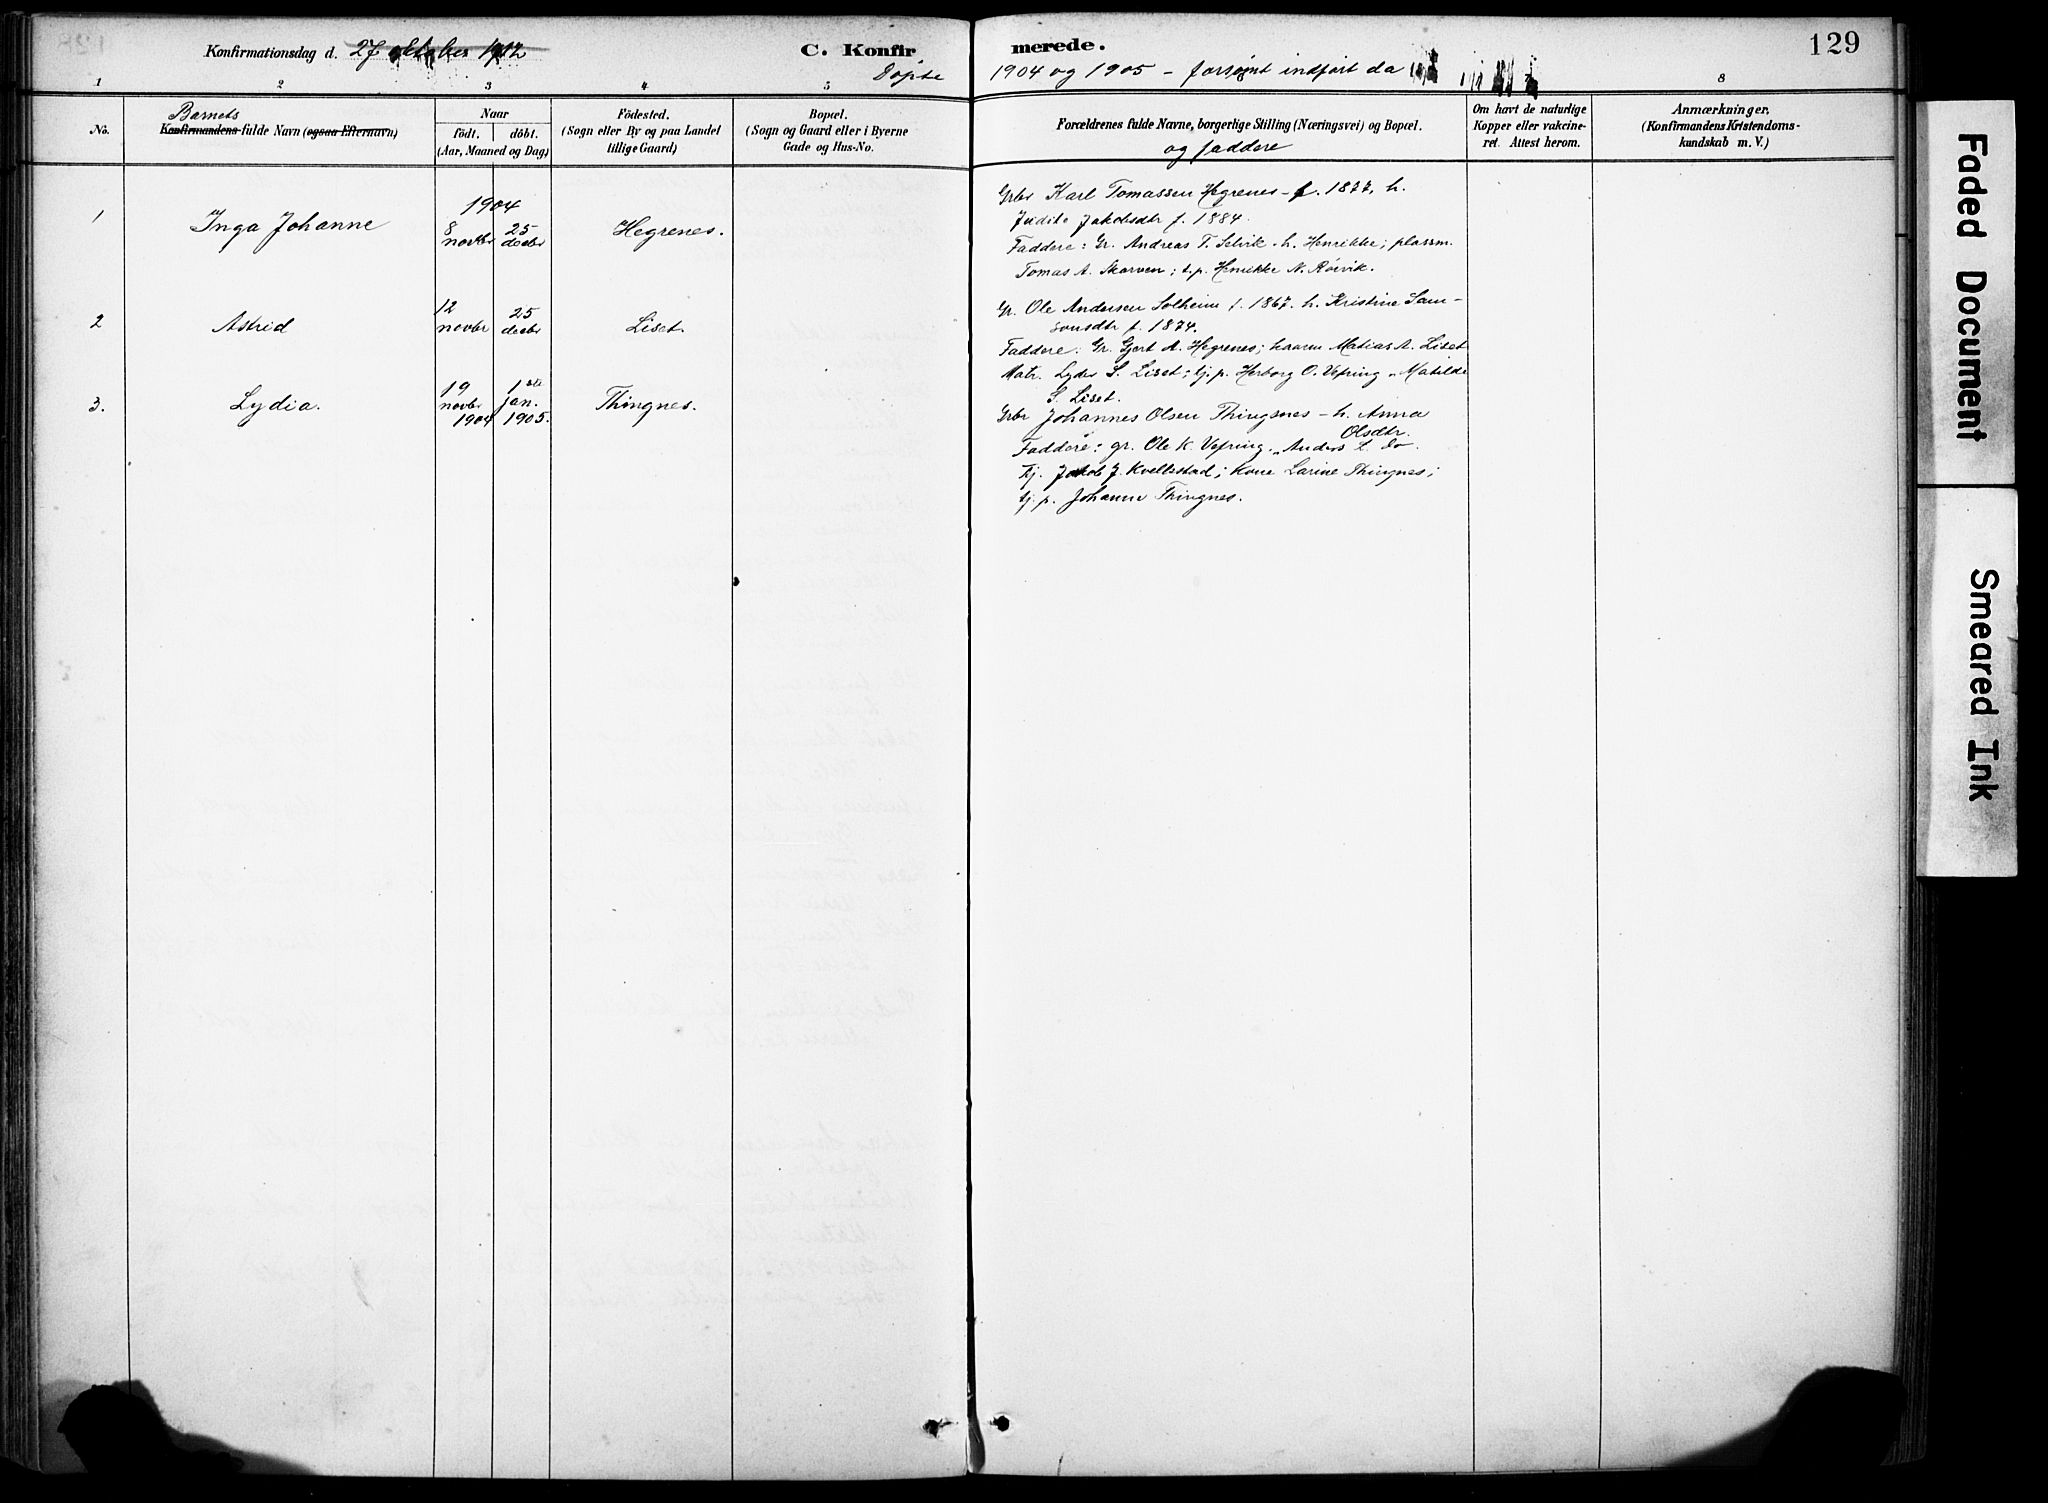 129
Konfirmationsdag d. 27 oktober 1912 C. Konfirmerede.
Døpte 1904 og 1905 – forsømt indført da
1 2 3 4 5 8
No.
Barnets
Konfirmandens fulde Navn (ogsaa Efternavn)
Naar
födt. döbt.
(Aar, Maaned og Dag)
Födested.
(Sogn eller By og paa Landet
tillige Gaard)
Bopæl.
(Sogn og Gaard eller i Byerne
Gade og Hus-No.
Forældrenes fulde Navne, borgerlige Stilling (Næringsvei) og Bopæl.
og faddere
Om havt de naturlige
Kopper eller vakcine-
ret. Attest herom.
Anmærkninger.
(Konfirmandens Kristendoms-
kundskab m. V.)
1
Inga Johanne
1904
8 novbr
25 decbr
Hegrenes.
Grbr Karl Tomassen Hegrenes – f. 1877, h.
Judite Jakobsdtr f. 1884.
Faddere: Gr. Andreas T. Selvik – h. Henrikke; plassm.
Tomas A. Skorven; t.p. Henrikke N. Röivik.
2
Astrid
12 novbr
25 decbr
Liset.
Gr. Ole Andersen Solheim f. 1867. h. Kristine Sam-
sonsdtr f. 1874.
Faddere: Gr. Gjert A. Hegrenes; Matias A. Liset
Matr. Lyder S. Liset; tj.p. Herborg O. Vefring, Matilde
S. Liset.
3.
Lydia.
19 novbr 1904
1ste jan. 1905.
Thingnes.
Grbr Johannes Olsen Thingnes – h. Anna
Olsdtr.
Faddere: gr. Ole K. Vefring, Anders L. do.
tj. Jakob J. Kvellestad; Kone Larine Thingnes;
tj. p. Johanne Thingnes.
Faded Document
Smeared Ink